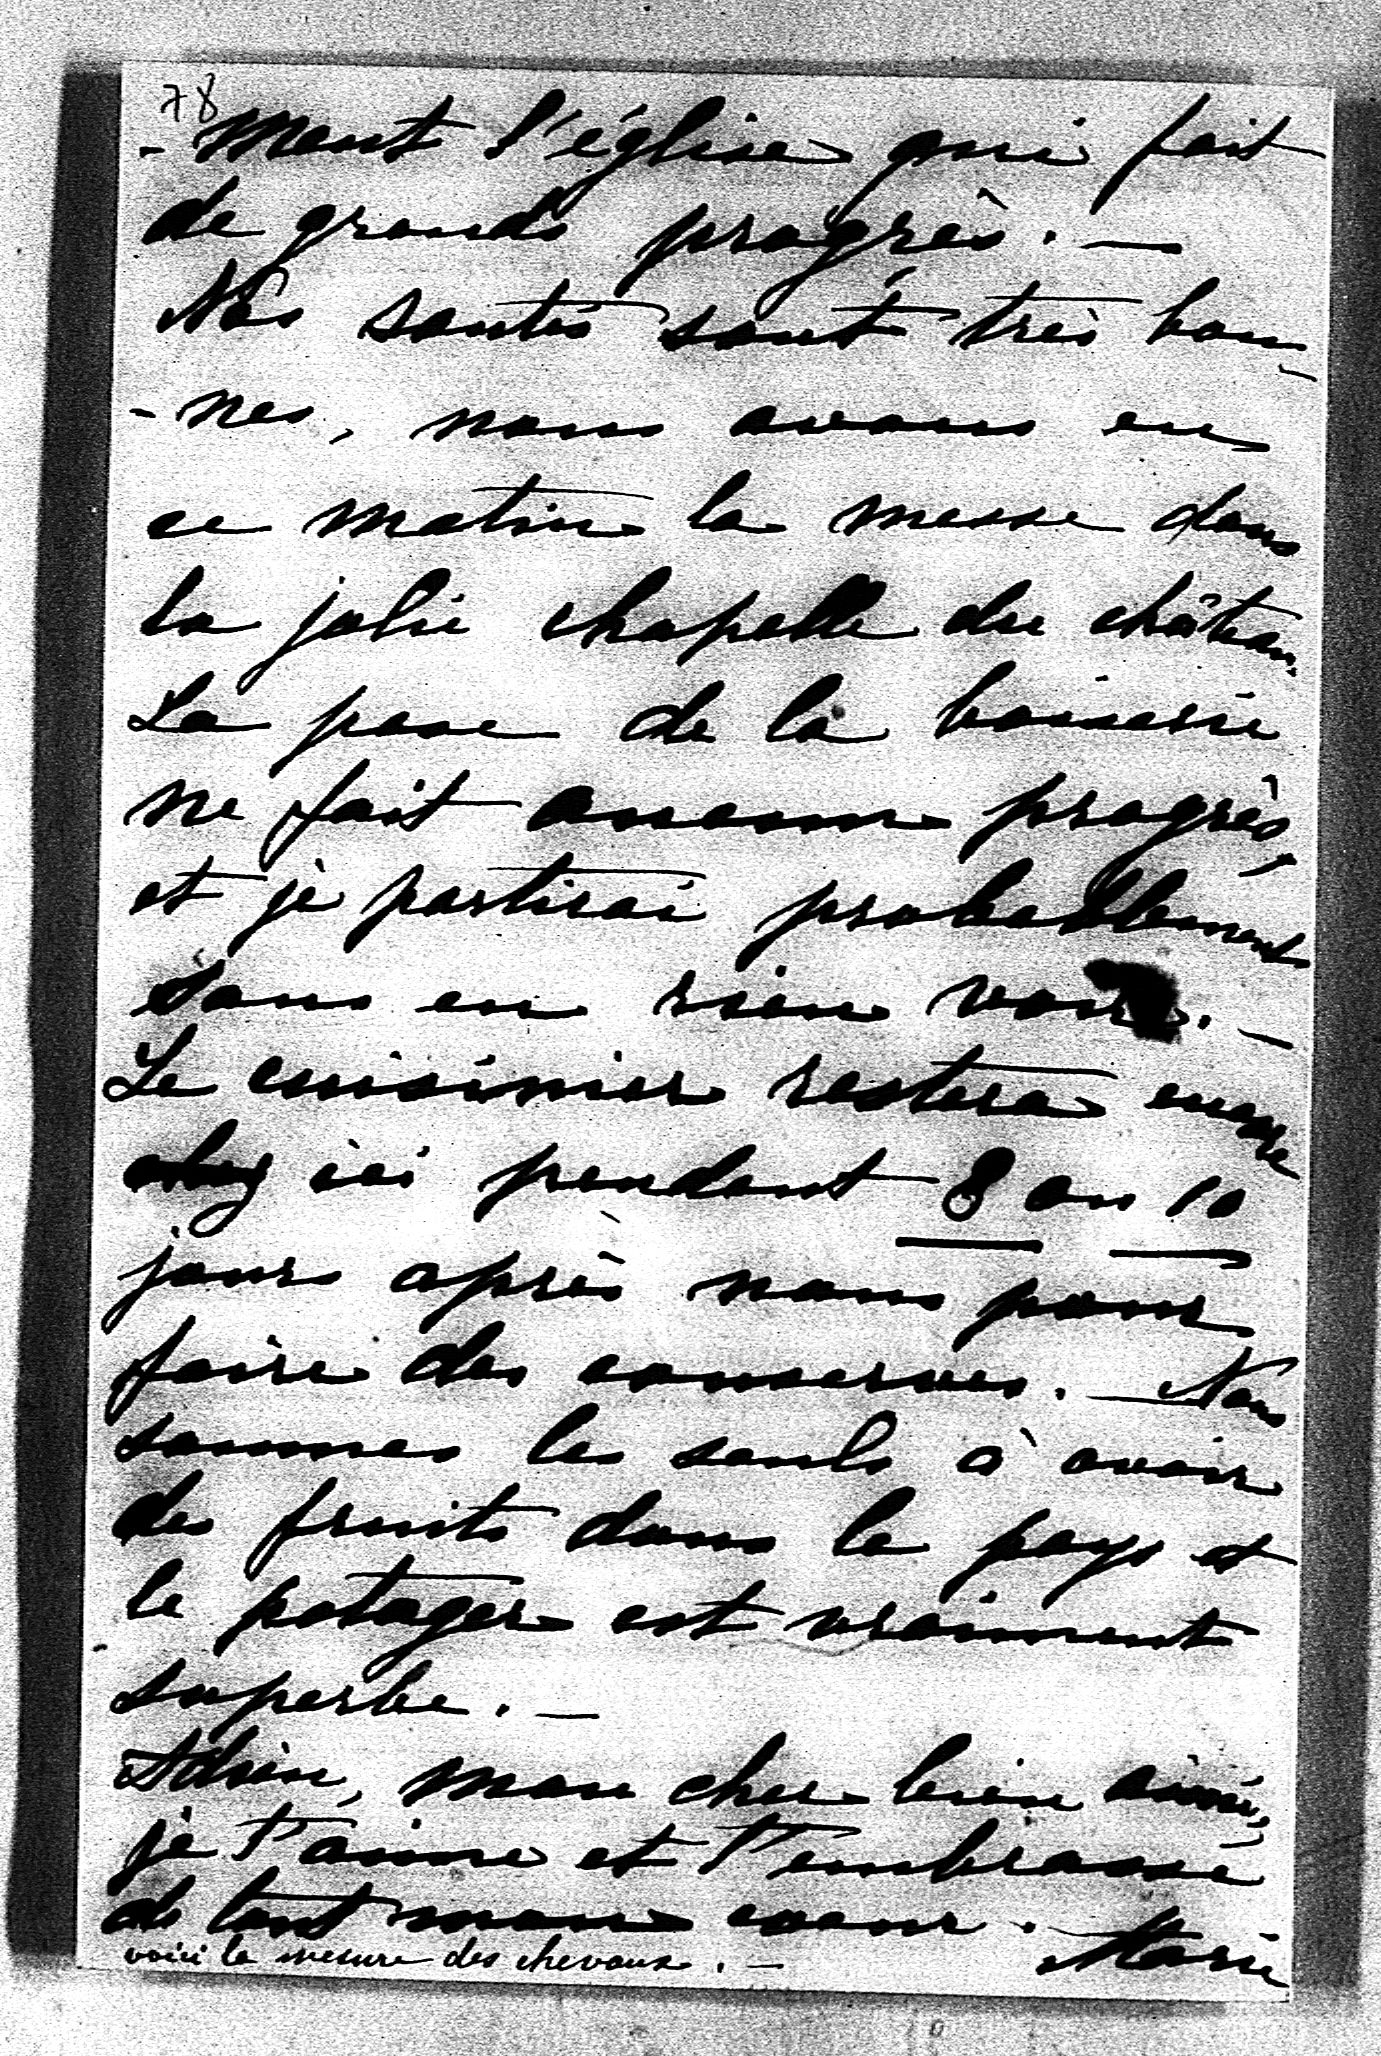 78
- ment l'église qui fait
de grands progrès. —
Nos santés sont très bon-
- nes, nous avons eu
ce matin la messe dans
la jolie chapelle du château.
La pose de la boiserie
ne fait aucun progrès,
et je partirai probablement
sans en rien voir. —
Le cuisinier restera encore
ici pendant 8 ou 10
jours après nous pour
faire des conserves. — Nous
sommes les seuls à avoir
des fruits dans le pays et
le potager est vraiment
superbe. —
Adieu, mon cher bien aimé,
je t'aime et t'embrasse
de tout mon coeur. — Marie
voici la mesure des chevaux. —